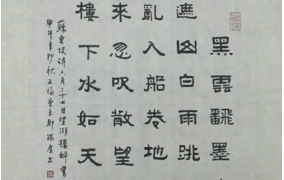 黑雲飜墨
遮山白雨跳
亂入船卷地
來忽吹散望
樓下水如天
蘇東坡詩六月二十七日望湖樓醉書
甲午年秋